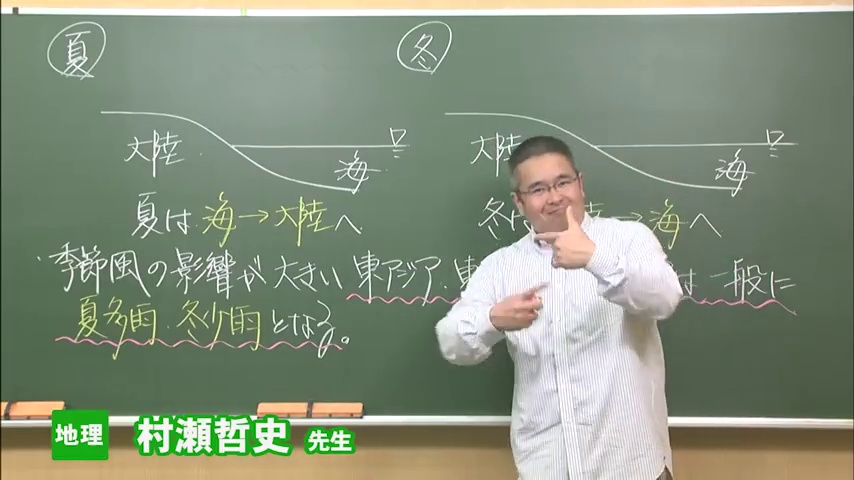 夏
冬
大陸
海
大陸
海
夏は 海→大陸へ
冬は 陸→海へ
季節風の影響が 大きい 東アジア・東 は一般に
夏多雨・冬少雨となる。
地理 村瀬哲史 先生